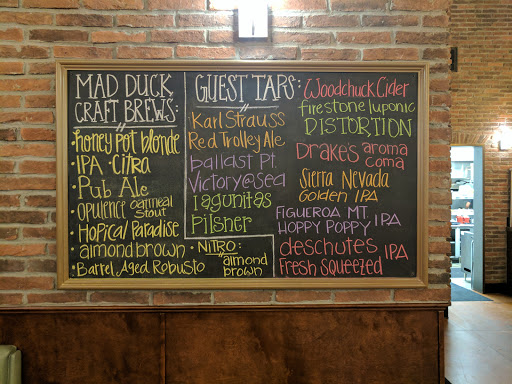 MAD DUCK
CRAFT BREWS:
• honey pot blonde
• IPA • Citra
• Pub Ale
• opulence oatmeal stout
• Hopical Paradise
• almond brown
• Barrel Aged Robusto
• NITRO:
almond
brown
GUEST TAPS:
Karl Strauss
Red Trolley Ale
ballast Pt.
Victory@Sea
Lagunitas
Pilsner
Woodchuck Cider
firestone luponic
DISTORTION
DRAKE'S aroma
coma
Sierra Nevada
Golden IPA
FIGUEROA MT.
HOPPY POPPY IPA
deschutes
Fresh Squeezed IPA